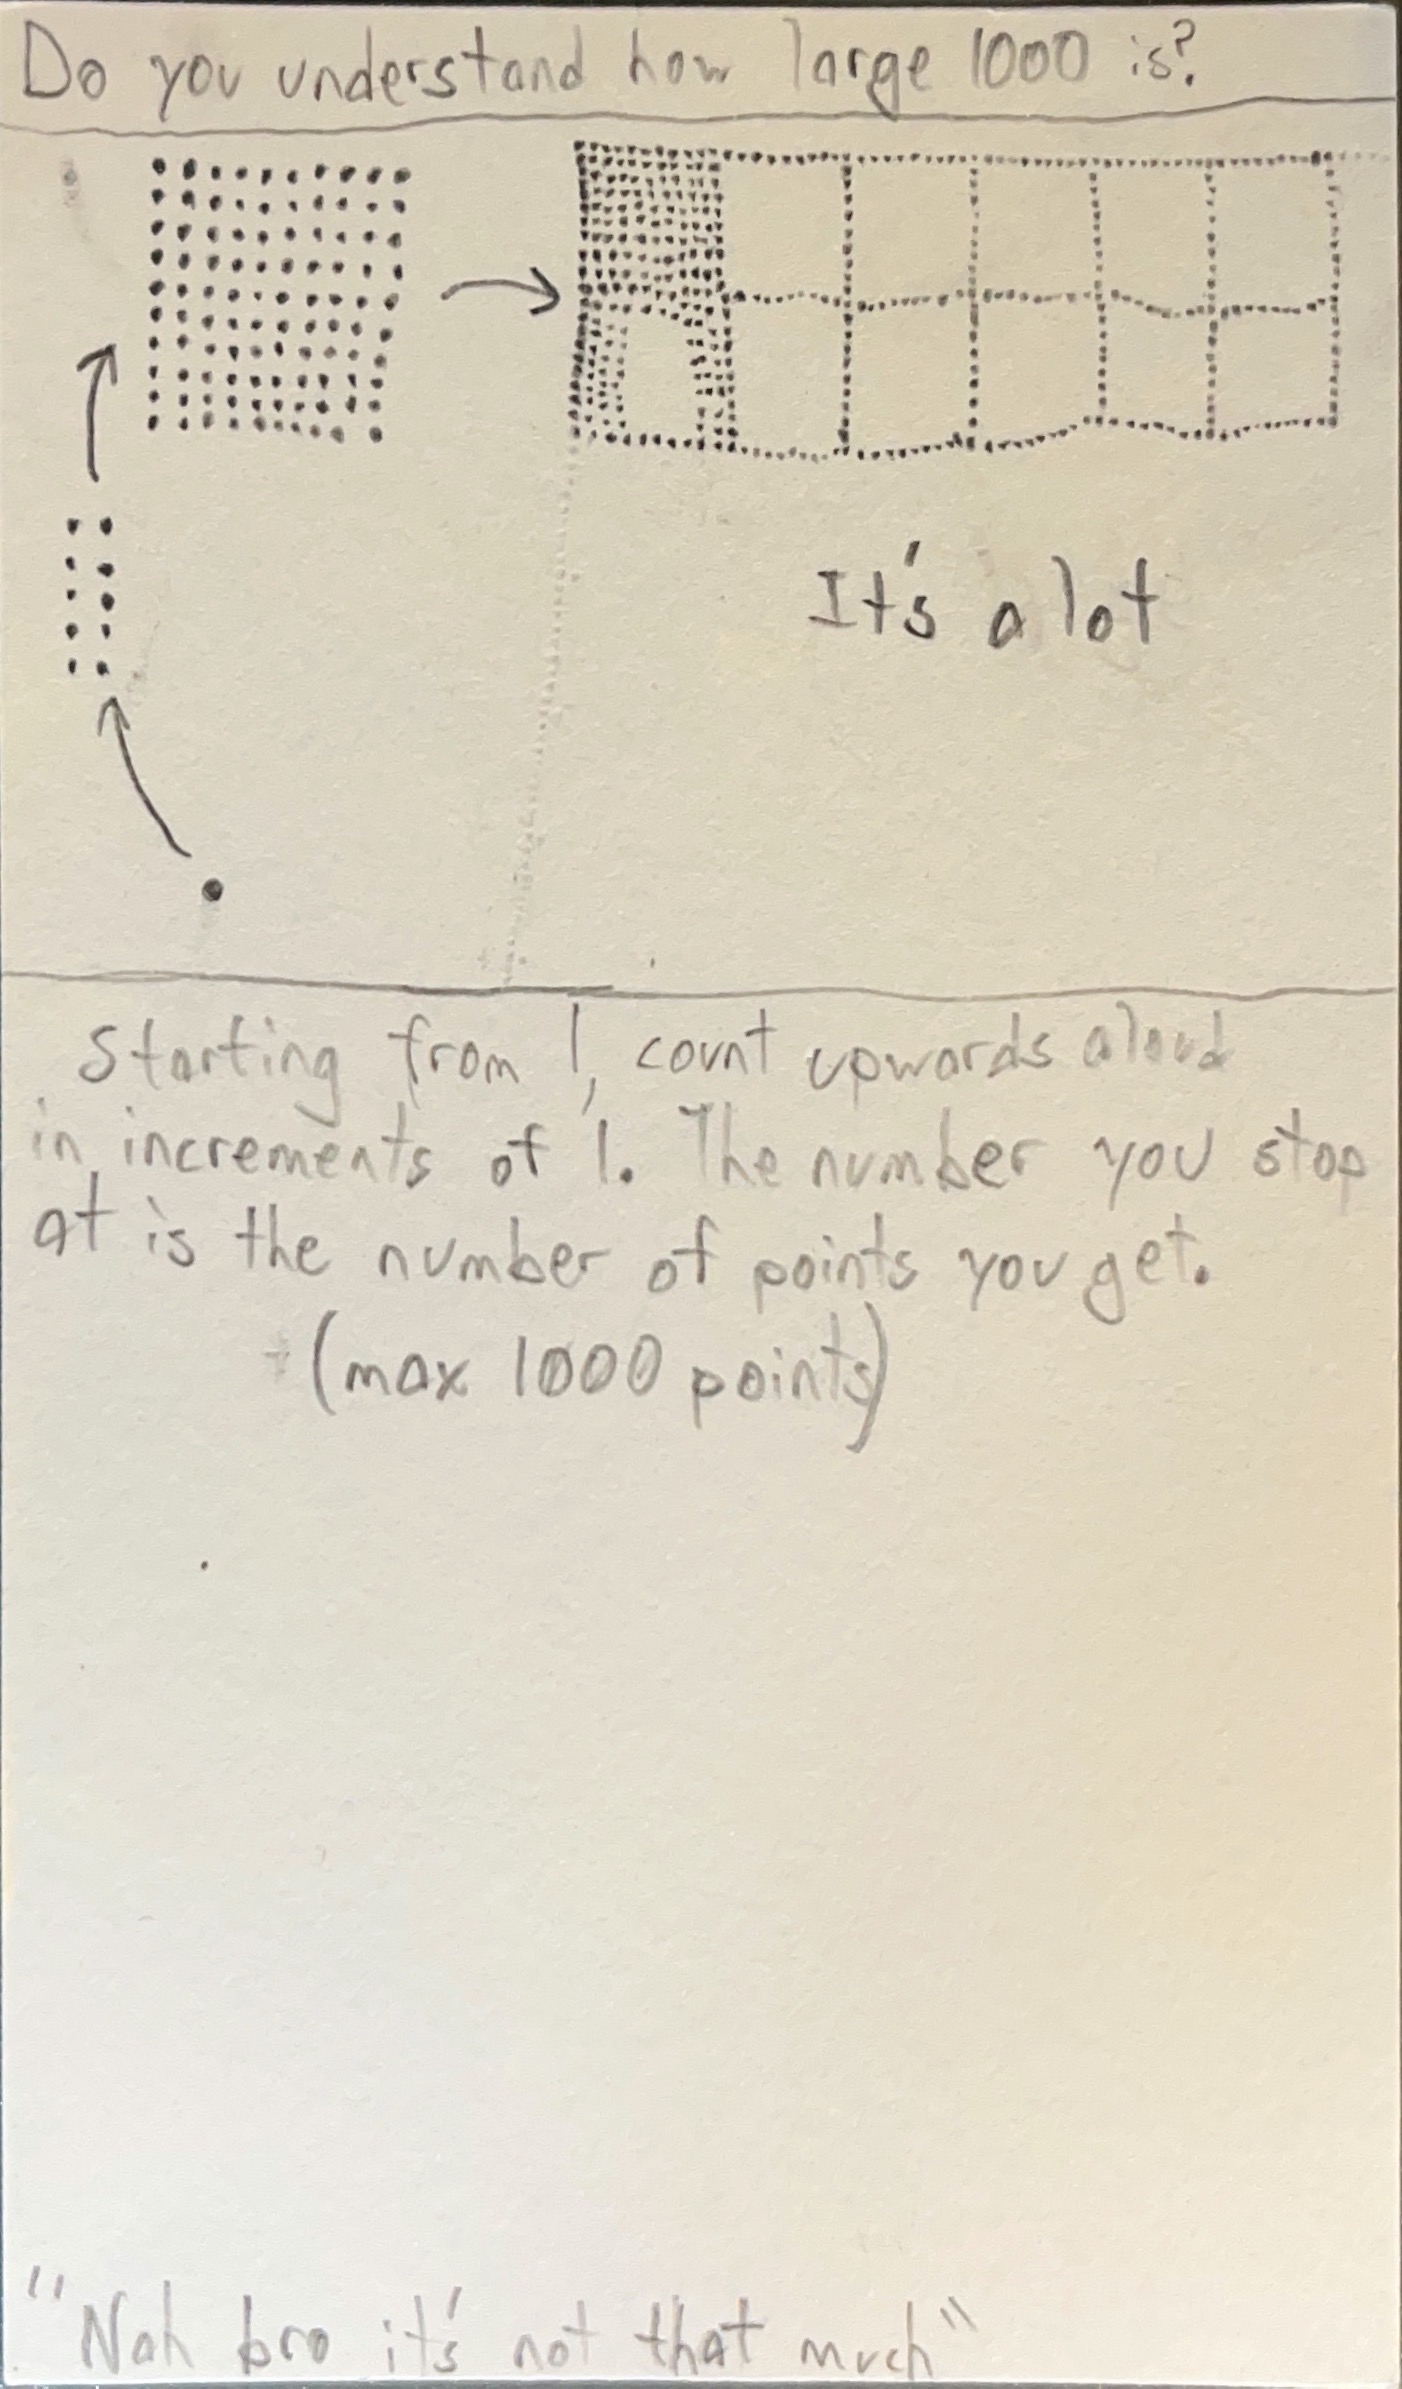 Do you understand how large 1000 is?
It's a lot
Starting from 1, count upwards aloud
in increments of 1. The number you stop
at is the number of points you get.
(max 1000 points)
"Nah bro it's not that much"